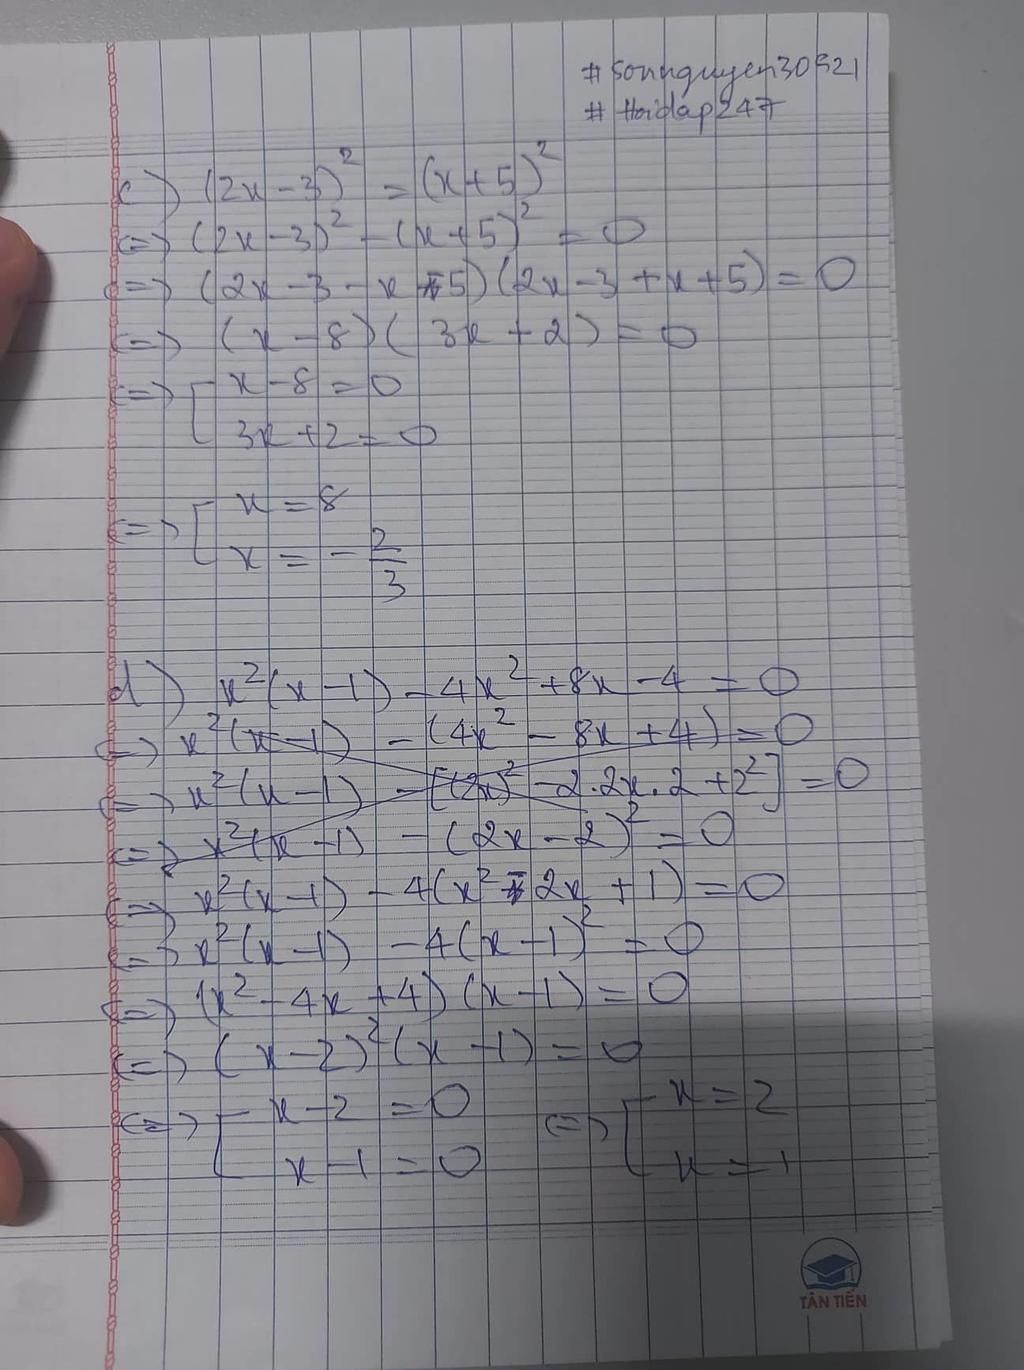 #Sonnguyen30521
#Hoidap247
c) (2x-3)² = (x+5)²
<=> (2x-3)² - (x+5)² = 0
<=> (2x-3-x-5)(2x-3+x+5) = 0
<=> (x-8)(3x+2) = 0
<=> [ x-8 = 0
3x+2 = 0
<=> [ x = 8
x = -2/3
d) x²(x-1) - 4x² + 8x - 4 = 0
<=> x²(x-1) - (4x² - 8x + 4) = 0
<=> x²(x-1) - [(2x)² - 2.2x.2 + 2²] = 0
<=> x²(x-1) - (2x-2)² = 0
<=> x²(x-1) - 4(x² - 2x + 1) = 0
<=> x²(x-1) - 4(x-1)² = 0
<=> (x² - 4x + 4)(x-1) = 0
<=> (x-2)²(x-1) = 0
<=> [ x-2 = 0 <=> [ x = 2
x-1 = 0 x = 1
TÂN TIẾN